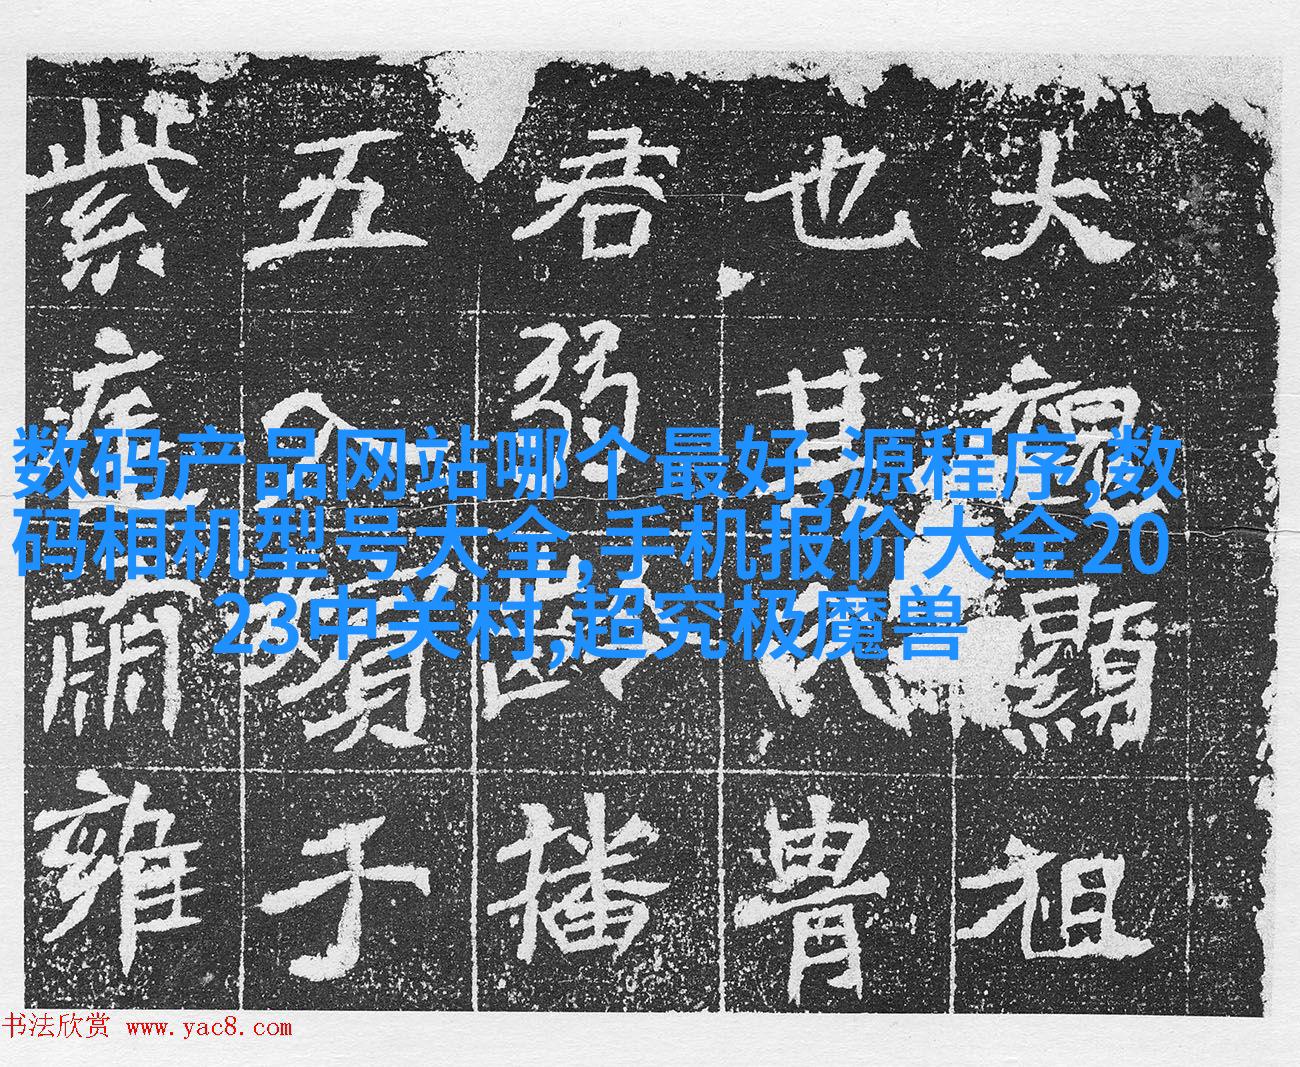 数码产品网站哪个最好,源程序,数
码相机型号大全,手机报价大全20
23中关村,超究极魔兽
大顯祖
也其胄
君弱齡播
五于
紫雍
书法欣赏 www.yac8.com